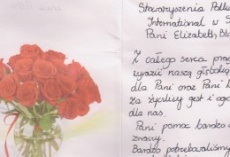 Stowarzyszenia Polka
International w S
Pani Elizabeth, Bla
Z całego serca prag
wyrazić naszą głęboką
dla Pani oraz Pani
Za życzliwy gest i
dla nas.
Pani pomoc bardzo
Bardzo potrzebowaliśmy